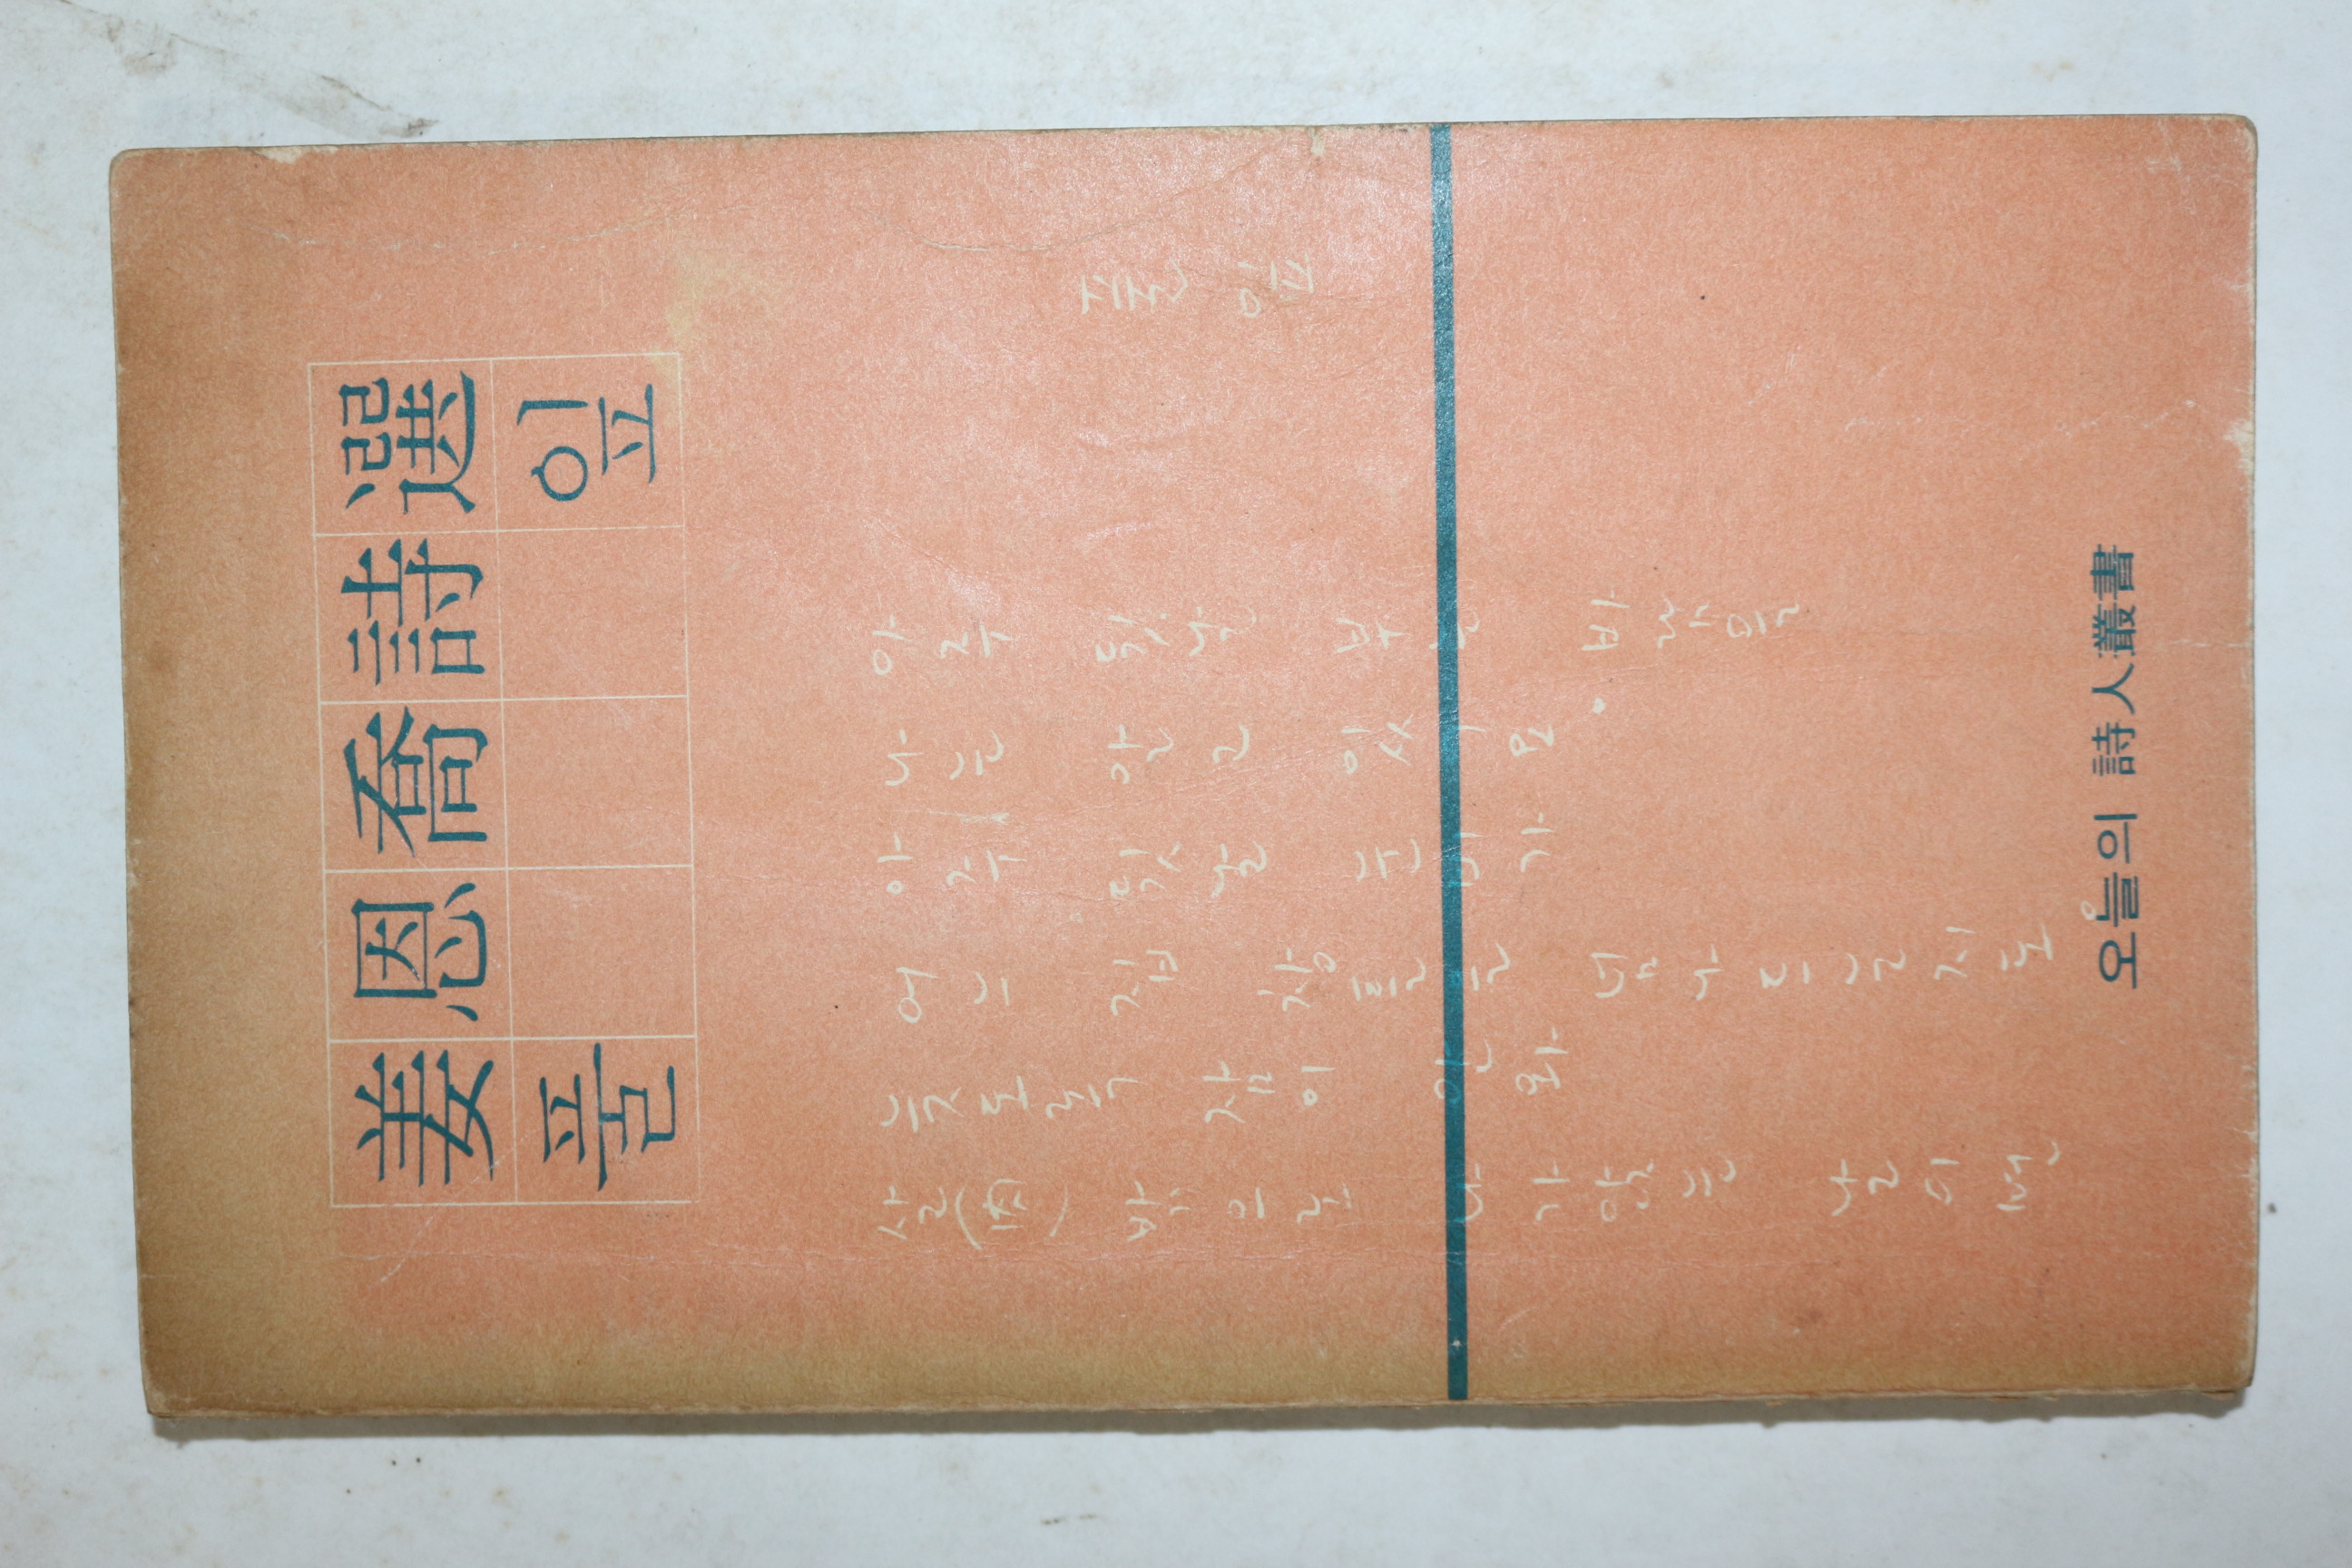 姜恩喬詩選
풀잎
풀잎
아주 뒷날 부는 바람을
나는 알고 있어요.
아주 뒷날 눈비가
어느 집 창틀을 넘나드는지도
늦도록 잠이 안와
살(肉) 밖으로 나가앉는 날이면
오늘의 詩人叢書